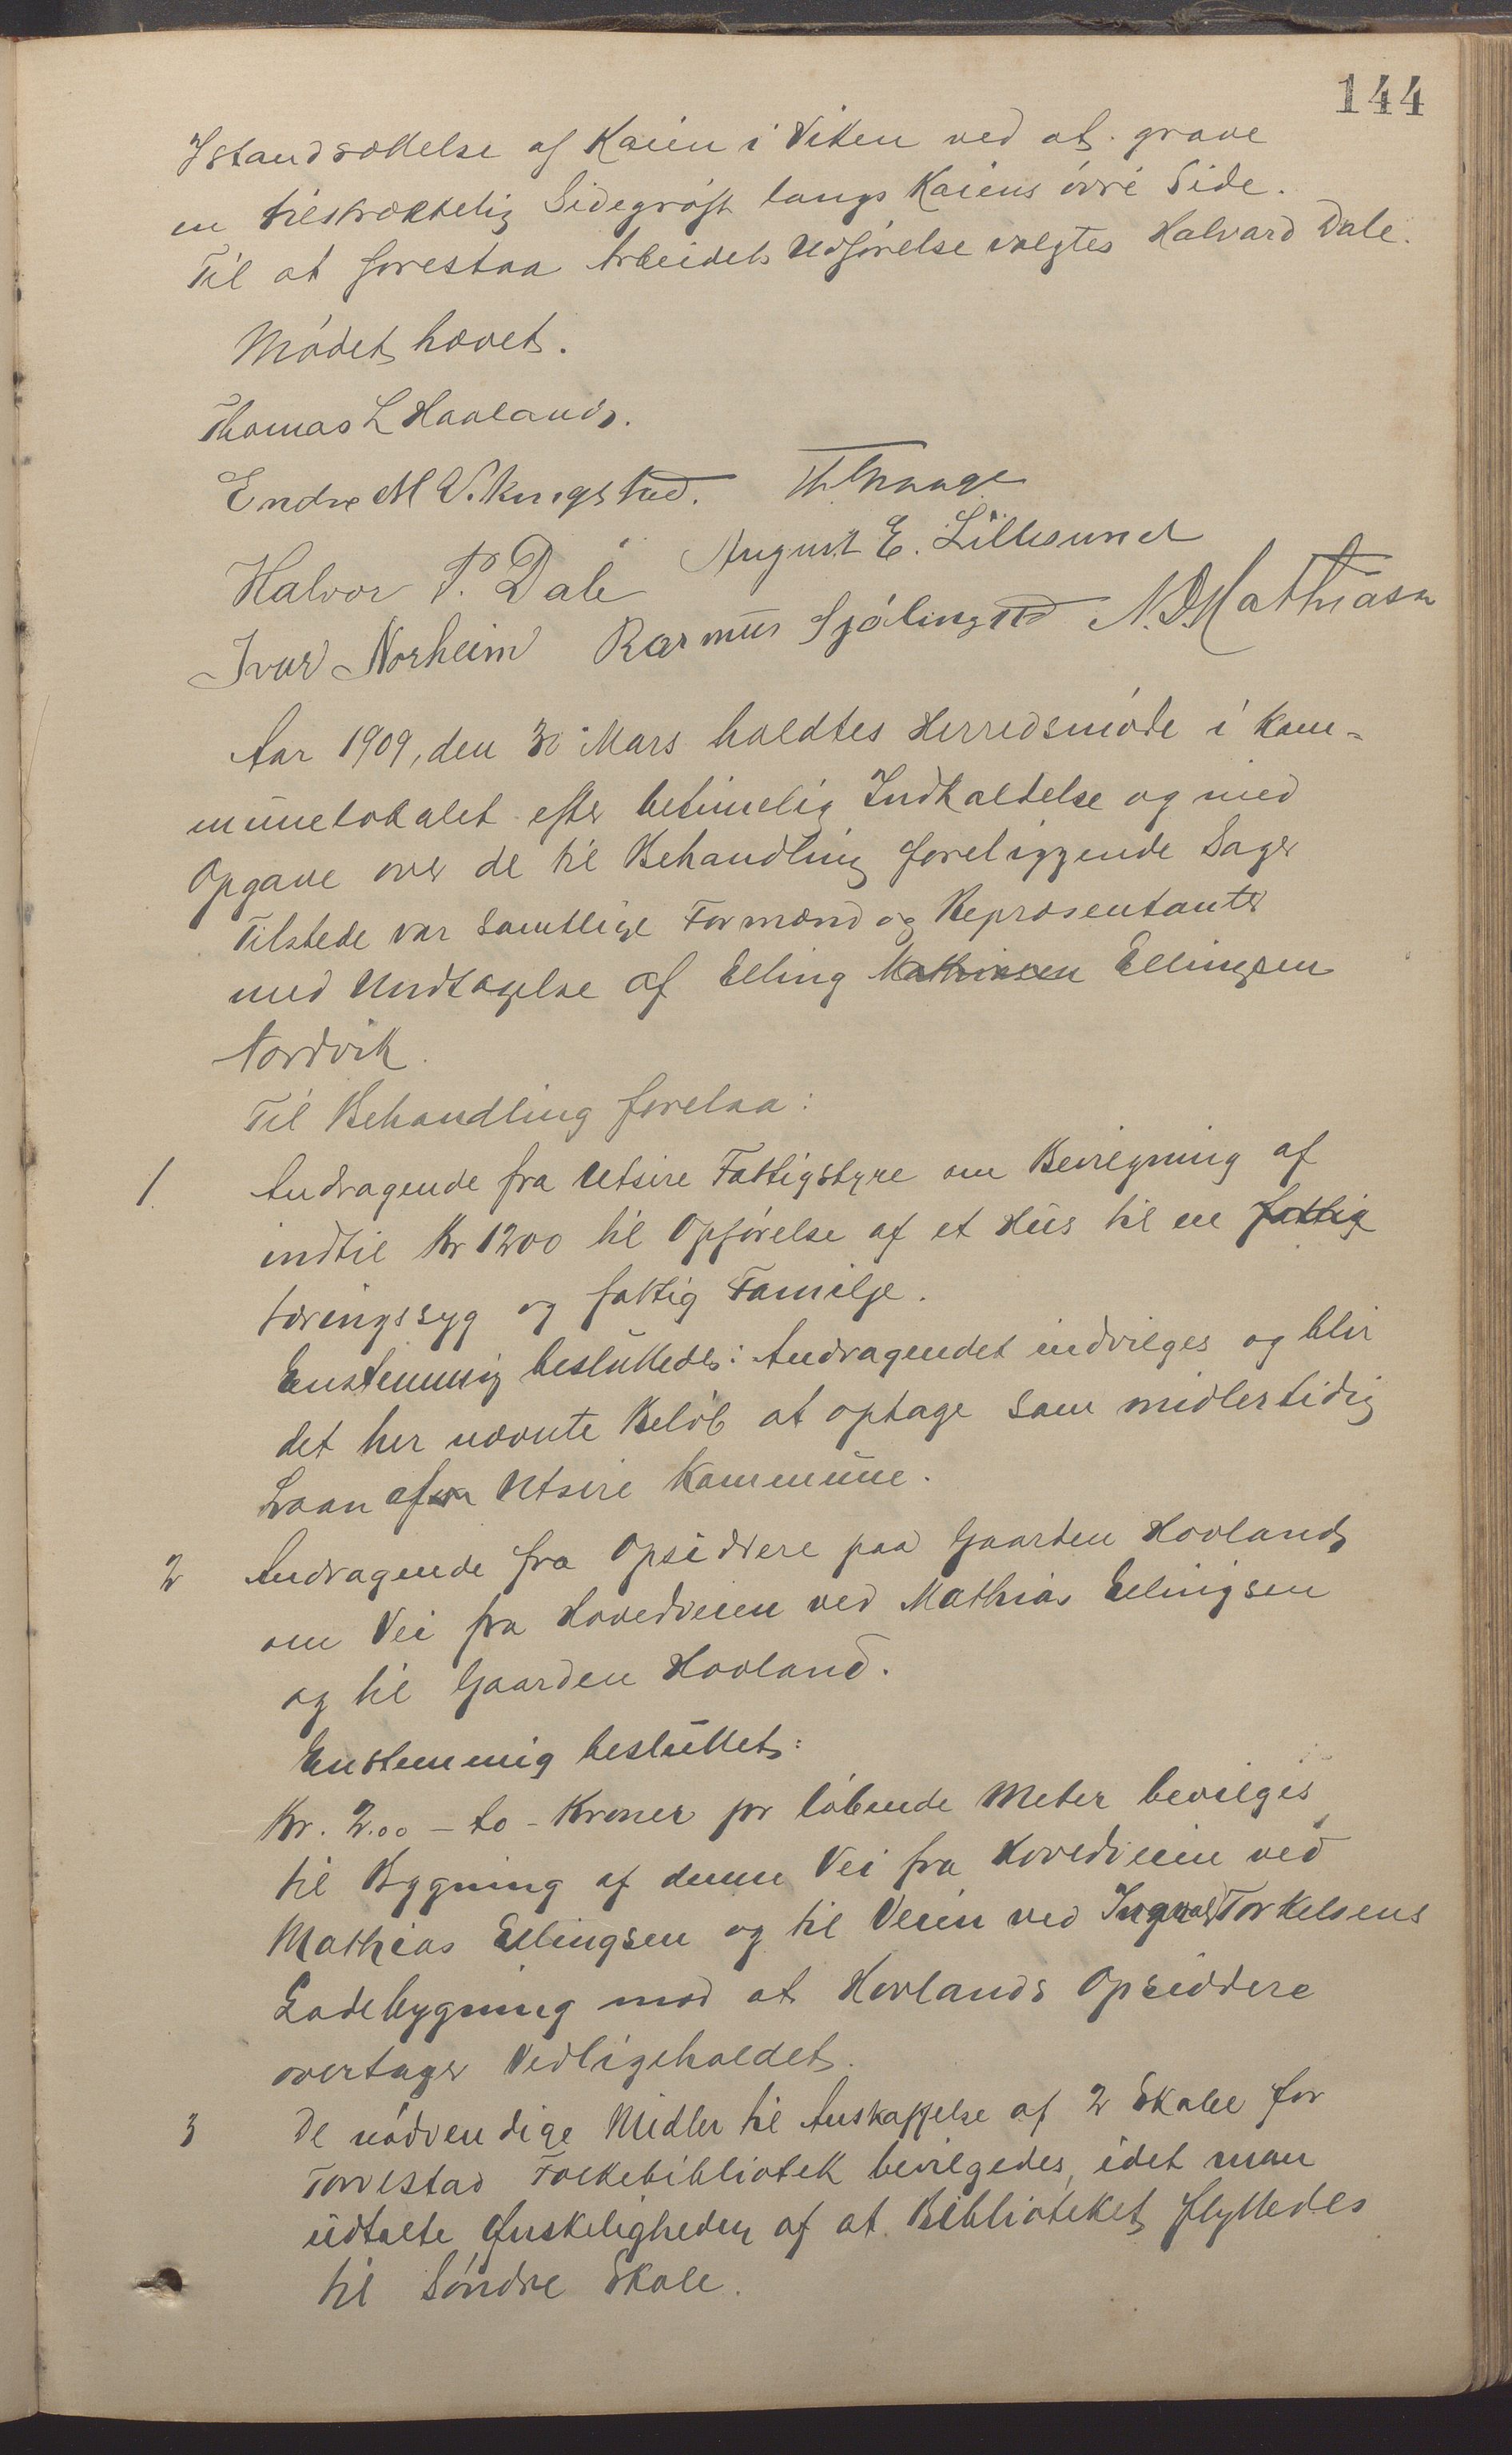 144
Istandsættelse af Kaien i Viken ved at grave
en tilstrækkelig Sidegrøft langs Kaiens øvre Side.
Til at forestaa Arbeidets Udførelse valgtes Halvard Dale.
Mødet hævet.
Thomas L Havland.
Endre M Vikingstad.
Halvor P. Dale August E. Lillesund
Ivar Norheim Rasmus Sjølingstad N. D. Mathiasen
Aar 1909, den 30 Mars holdtes Herredsmøde i Kom-
munelokalet efter betimelig Indkaldelse og med
Opgave over de til Behandling foreliggende Sager
Tilstede var samtlige Formænd og Repræsentanter
med Undtagelse af Elling Mathiasen Ellingsen
Nordvik.
Til Behandling forelaa:
1 Andragende fra Utsire Fattigstyre om Bevilgning af
indtil Kr 1200 til Opførelse af et Hus til en fattig
tæringssyg og fattig Familje.
Enstemmig besluttedes: Andragendet indvilges og blir
det her nævnte Beløb at optage som midlertidig
Laan af Utsire Kommune.
2 Andragende fra Opsiddere paa Gaarden Hovland
om Vei fra Hovedveien ved Mathias Ellingsen
og til Gaarden Hovland.
Enstemmig besluttet:
Kr. 2.00 - to - Kroner pr løbende Meter bevilges
til Bygning af denne Vei fra Hovedveien ved
Mathias Ellingsen og til Veien ved Ingvald Torkelsens
Ladebygning mod at Hovlands Opsiddere
overtager Vedligeholdet.
3 De nødvendige Midler til Anskaffelse af 2 Skabe for
Torvestad Folkebibliotek bevilgedes, idet man
udtalte Ønskeligheden af at Biblioteket flyttedes
til Søndre Skole.